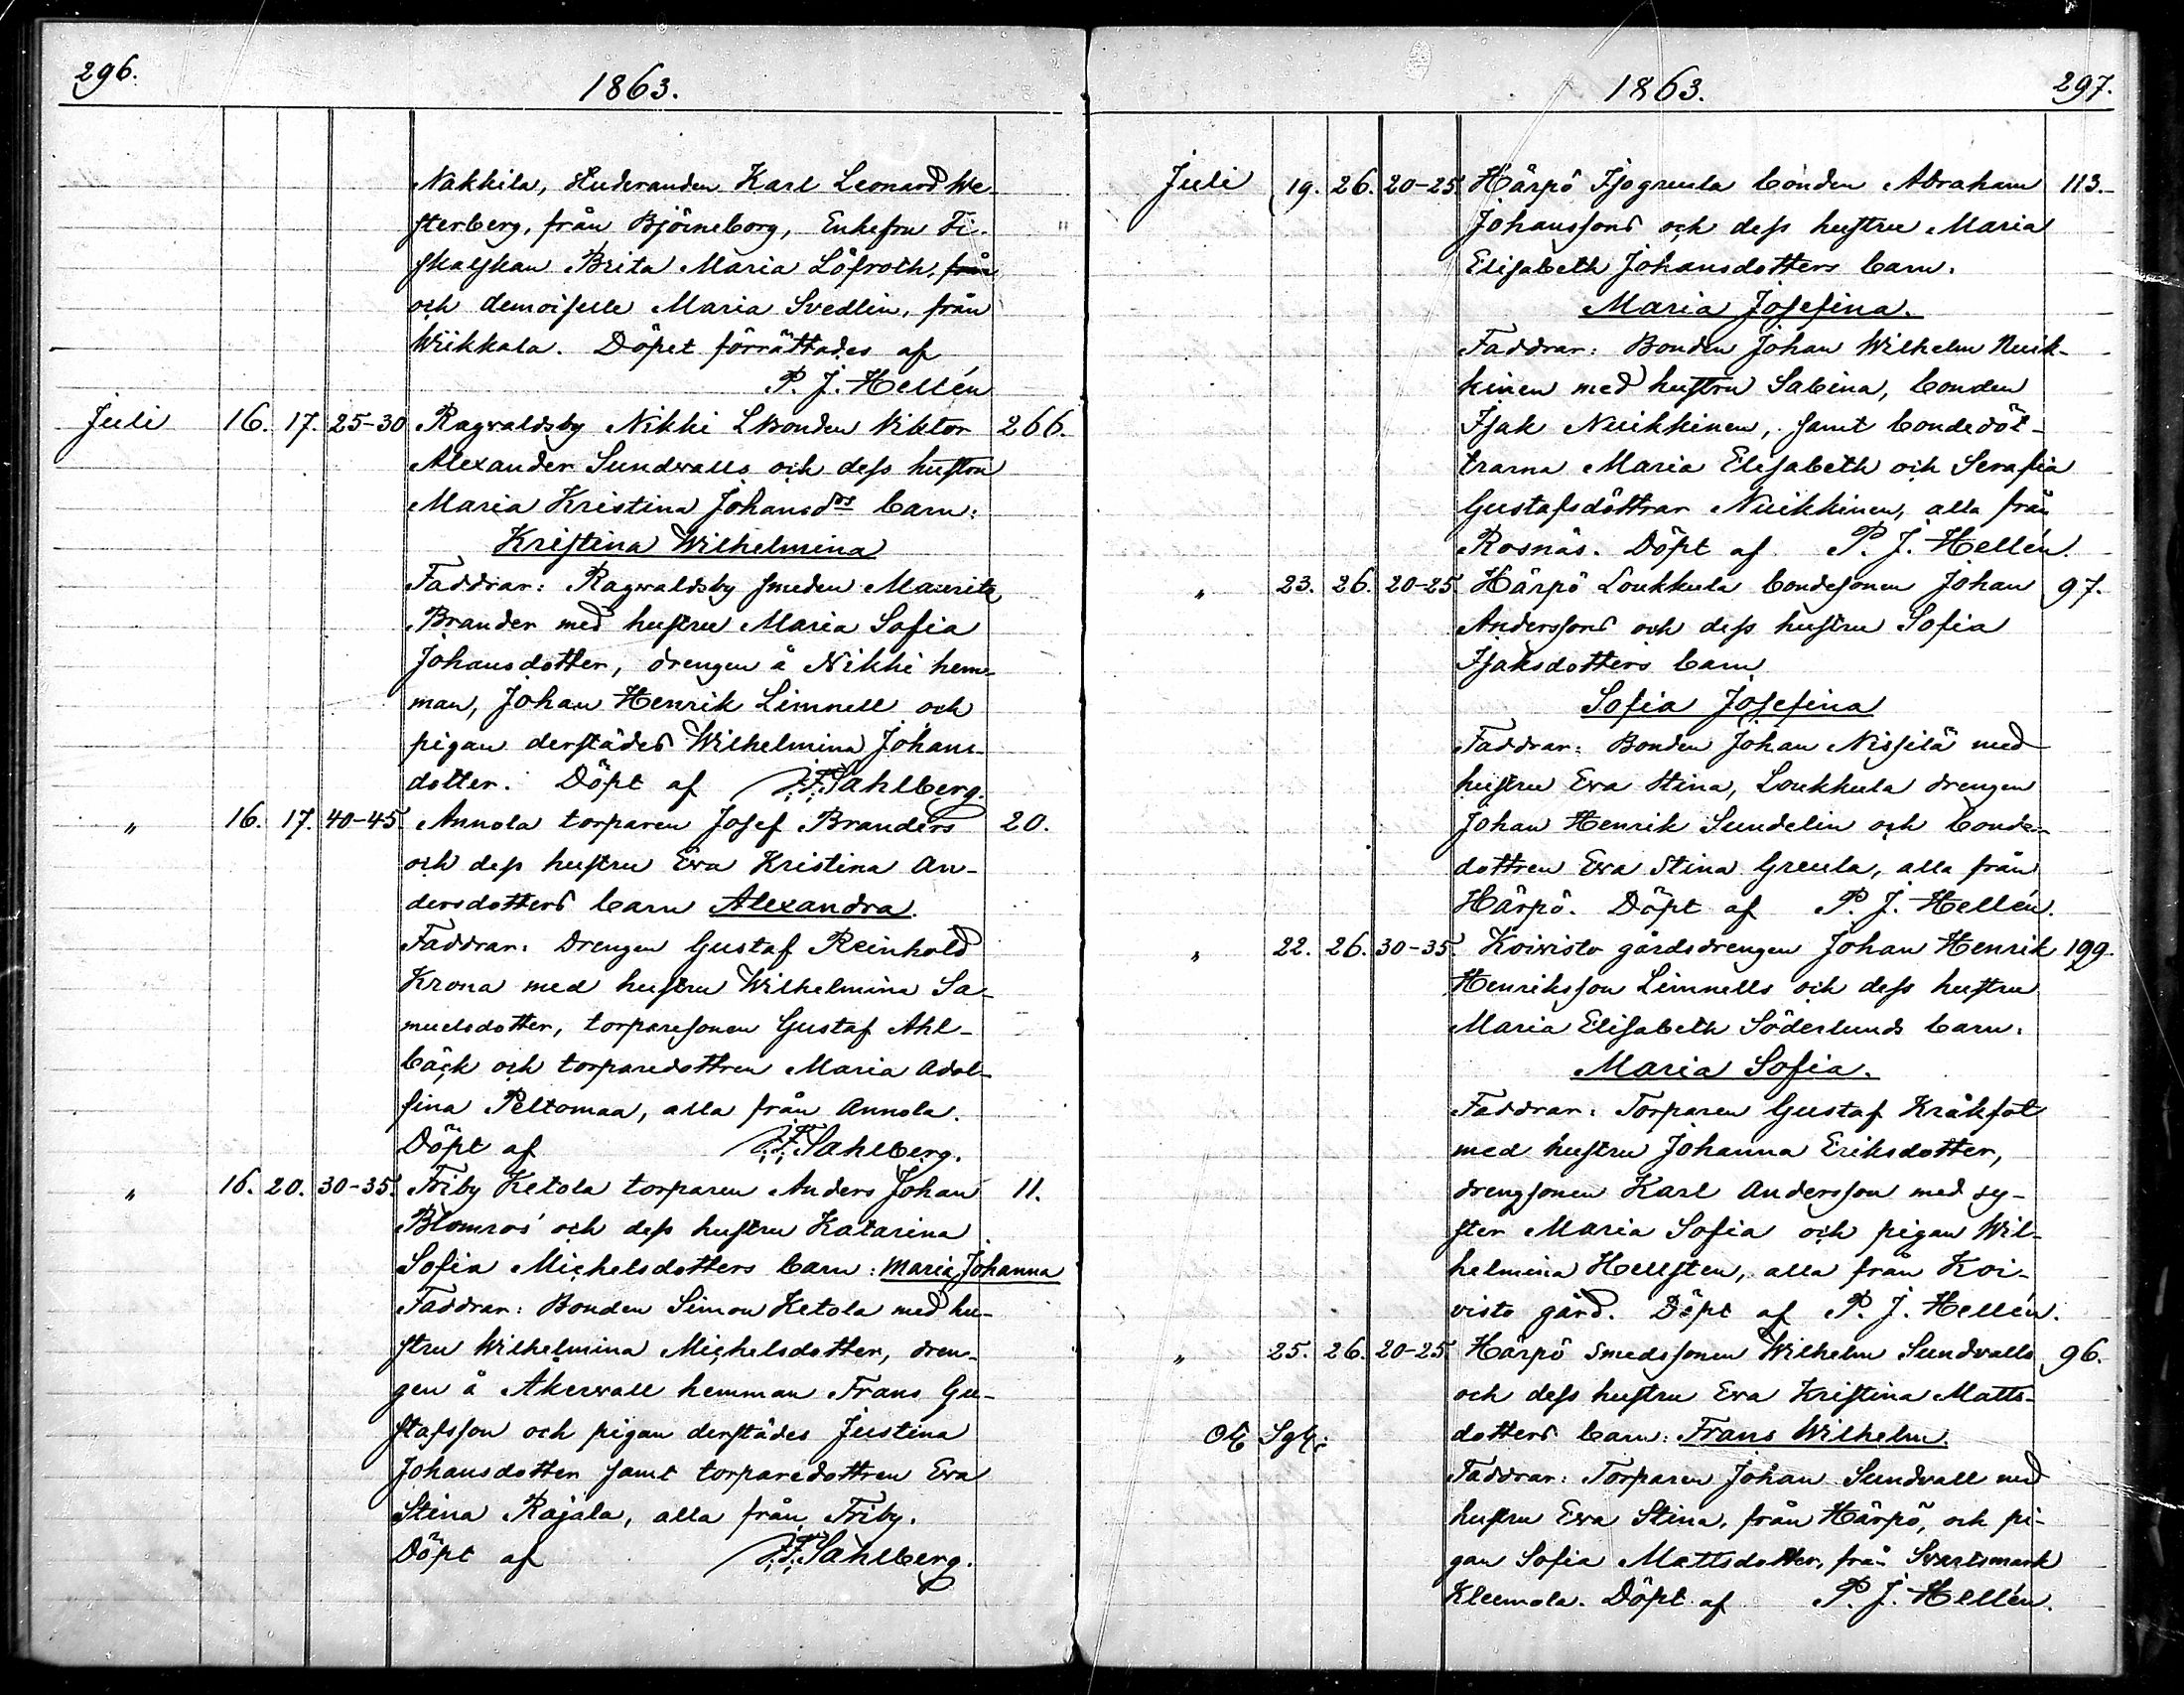 296.
1863.
Nakkila, studeranden Karl Leonard We-
sterberg, från Björneborg, Enkefru Fi-
skalskan Brita Maria Löfroth, från
och demoiselle Maria Svedlin, från
Wiikkala. Döpet förrättades af
P. J. Hellén
Juli 16. 17. 25-30 Ragvaldsby Nikki Lbonden Viktor 266.
Alexander Sundvalls och dess hustru
Maria Kristina Johansdrs barn:
Kristina Wilhelmina
Faddrar: Ragvaldsby smeden Maurits
Brander med hustru Maria Sofia
Johansdotter, drengen å Nikki hem-
man, Johan Henrik Limnell och
pigan derstädes Wilhelmina Johans-
dotter. Döpt af F. Sahlberg.
" 16. 17. 40-45. Annola torparen Josef Branders 20.
och dess hustru Eva Kristina An-
dersdotters barn Alexandra.
Faddrar: Drengen Gustaf Reinhold
Krona med hustru Wilhelmina Sa-
muelsdotter, torparesonen Gustaf Ahl-
bäck och torparedottren Maria Adol-
fina Peltomaa, alla från Annola.
Döpt af F. Sahlberg.
" 16. 20. 30-35. Friby Ketola torparen Anders Johan 11.
Blomros' och dess hustru Katarina
Sofia Michelsdotters barn: Maria Johanna
Faddrar: Bonden Simon Ketola med hu-
stru Wilhelmina Michelsdotter, dren-
gen å Åkerwall hemman Frans Gu-
stafsson och pigan derstädes Justina
Johansdotter samt torparedottren Eva
Stina Rajala, alla från Friby.
Döpt af F. Sahlberg.
1863.
297.
Juli 19. 26. 20-25. Härpö Isogruula bonden Abraham 113.
Johanssons och dess hustru Maria
Elisabeth Johansdotters barn.
Maria Josefina.
Faddrar: Bonden Johan Wilhelm Nuik-
kinen med hustru Sabina, bonden
Isak Nuikkinen, samt bondedöt-
trarna Maria Elisabeth och Serafia
Gustafsdöttrar Nuikkinen, alla från
Rosnäs. Döpt af P. J. Hellén.
" 23. 26. 20-25. Härpö Loukkula bondesonen Johan 97.
Anderssons och dess hustru Sofia
Isaksdotters barn
Sofia Josefina
Faddrar: Bonden Johan Nissilä med
hustru Eva Stina, Loukkula drengen
Johan Henrik Sundelin och bonde-
dottren Eva Stina Gruula, alla från
Härpö. Döpt af P. J. Hellén.
" 22. 26. 30-35. Koivisto gårdsdrengen Johan Henrik 199.
Henriksson Limnells och dess hustru
Maria Elisabeth Söderlunds barn.
Maria Sofia.
Faddrar: Torparen Gustaf Kråkfot
med hustru Johanna Eriksdotter,
drengsonen Karl Andersson med sy-
ster Maria Sofia och pigan Wil-
helmina Hellsten, alla från Koi-
visto gård. Döpt af P. J. Hellén.
" 25. 26. 20-25. Härpö Smedssonen Wilhelm Sundvalls 96.
och dess hustru Eva Kristina Matts-
dotters barn: Frans Wilhelm.
Faddrar: Torparen Johan Sundvall med
hustru Eva Stina, från Härpö, och pi-
gan Sofia Mattsdotter, från Svartsmark
Kleemola. Döpt af P. J. Hellén.